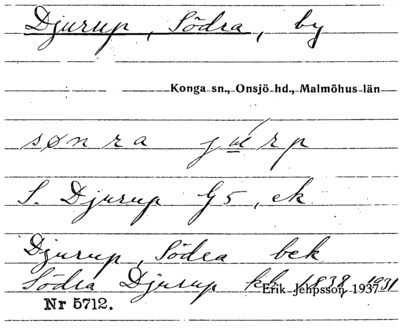 Djurup, Södra, by
Konga sn., Onsjö hd., Malmöhus län
sønra júrp
S. Djurup G5, ek
Djurup, Södra bek
Södra Djurup kb. 1838, 1931
Erik Jehpsson, 1937
Nr 5712.